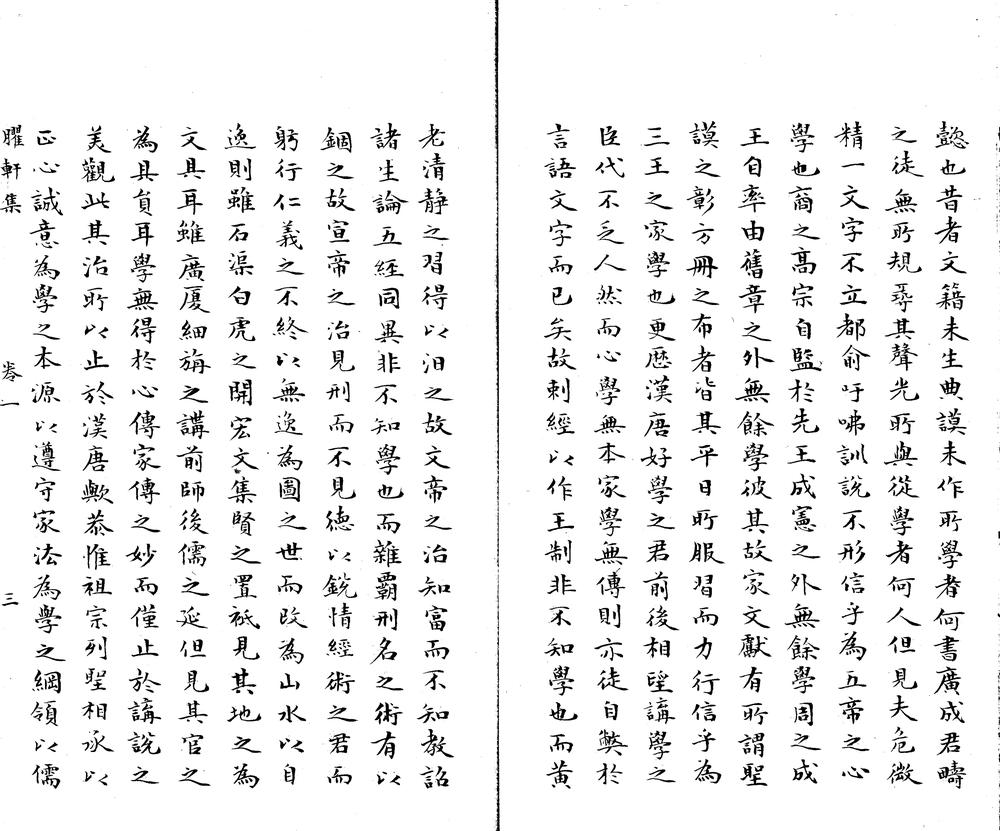 懿也昔者文籍未生典謨未作所學者何書廣成君疇
之徒無所規尋其聲光所與從學者何人但見夫危微
精一文字不立都俞吁咈訓說不形信乎為五帝之心
學也商之髙宗自監於先王成憲之外無餘學周之成
王自率由舊章之外無餘學彼其故家文獻有所謂聖
謨之彰方冊之布者皆其平日所服習而力行信乎為
三王之家學也更歴漢唐好學之君前後相望講學之
臣代不乏人然而心學無本家學無傳則亦徒自弊於
言語文字而已矣故刺經以作王制非不知學也而黄
老清静之習得以汨之故文帝之治知富而不知教詔
諸生論五經同異非不知學也而雜霸刑名之術有以
錮之故宣帝之治見刑而不見徳以銳情經術之君而
躬行仁義之不終以無逸為圖之世而改為山水以自
逸則雖石渠白虎之開宏文集賢之置祗見其地之為
文具耳雖廣厦細旃之講前師後儒之延但見其官之
為具負耳學無得於心傳家傳之妙而僅止於講說之
美觀此其治所以止於漢唐歟恭惟祖宗列聖相承以
正心誠意為學之本源以遵守家法為學之綱領以儒
臞軒集
卷一
三